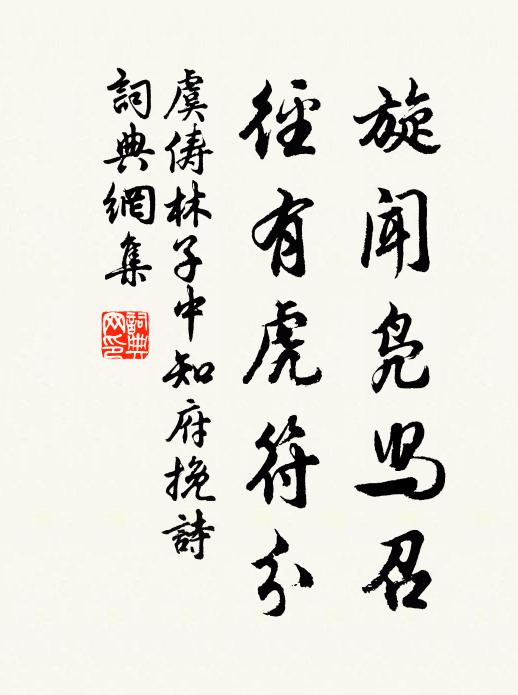 旋聞鳧舄召
徑有虎符分
虞儔林子中知府挽詩
詞典網集
詞典網印